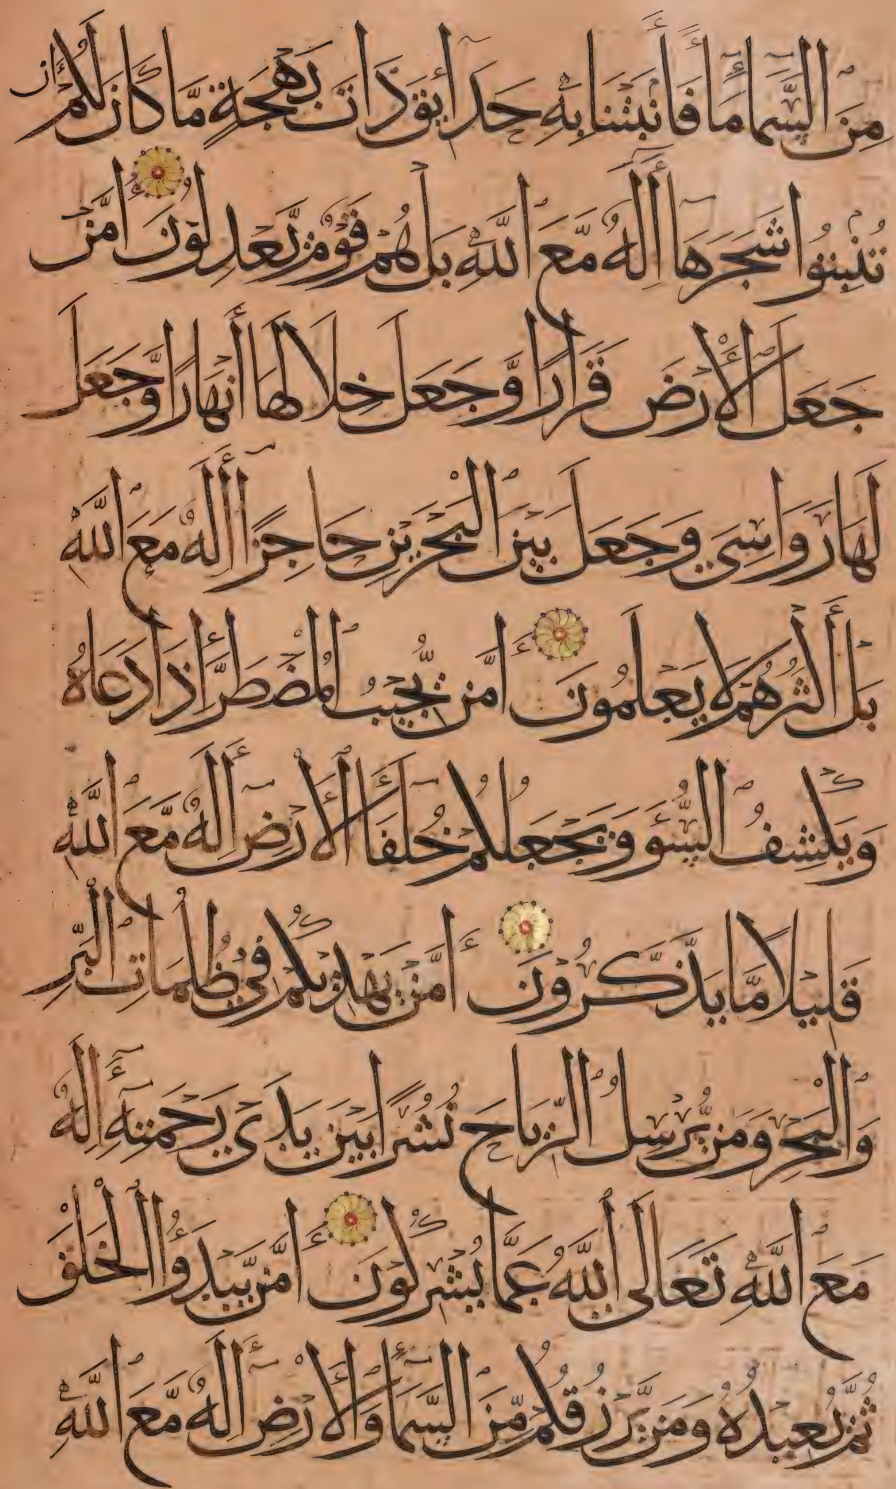 مِنَ السَّمَاءِ مَاءً فَأَنْبَتْنَا بِهِ حَدَائِقَ ذَاتَ بَهْجَةٍ مَّا كَانَ لَكُمْ أَن
تُنْبِتُوا شَجَرَهَا أَإِلَهٌ مَّعَ اللَّهِ بَلْ هُمْ قَوْمٌ يَّعْدِلُونَ أَمَّنْ
جَعَلَ الْأَرْضَ قَرَارًا وَّجَعَلَ خِلَالَهَا أَنْهَارًا وَّجَعَلَ
لَهَا رَوَاسِيَ وَجَعَلَ بَيْنَ الْبَحْرَيْنِ حَاجِزًا أَإِلَهٌ مَّعَ اللَّهِ
بَلْ أَكْثَرُهُمْ لَا يَعْلَمُونَ أَمَّن يُّجِيبُ الْمُضْطَرَّ إِذَا دَعَاهُ
وَيَكْشِفُ السُّوءَ وَيَجْعَلُكُمْ خُلَفَاءَ الْأَرْضِ أَإِلَهٌ مَّعَ اللَّهِ
قَلِيلًا مَّا يَذَّكَّرُونَ أَمَّن يَهْدِيكُمْ فِي ظُلُمَاتِ الْبَرِّ
وَالْبَحْرِ وَمَن يُّرْسِلُ الرِّيَاحَ نُشُرًا بَيْنَ يَدَيْ رَحْمَتِهِ أَإِلَهٌ
مَعَ اللَّهِ تَعَالَى اللَّهُ عَمَّا يُشْرِكُونَ أَمَّن يَّبْدَؤُا الْخَلْقَ
ثُمَّ يُعِيدُهُ وَمَن يَّرْزُقُكُم مِّنَ السَّمَاءِ وَالْأَرْضِ أَإِلَهٌ مَّعَ اللَّهِ